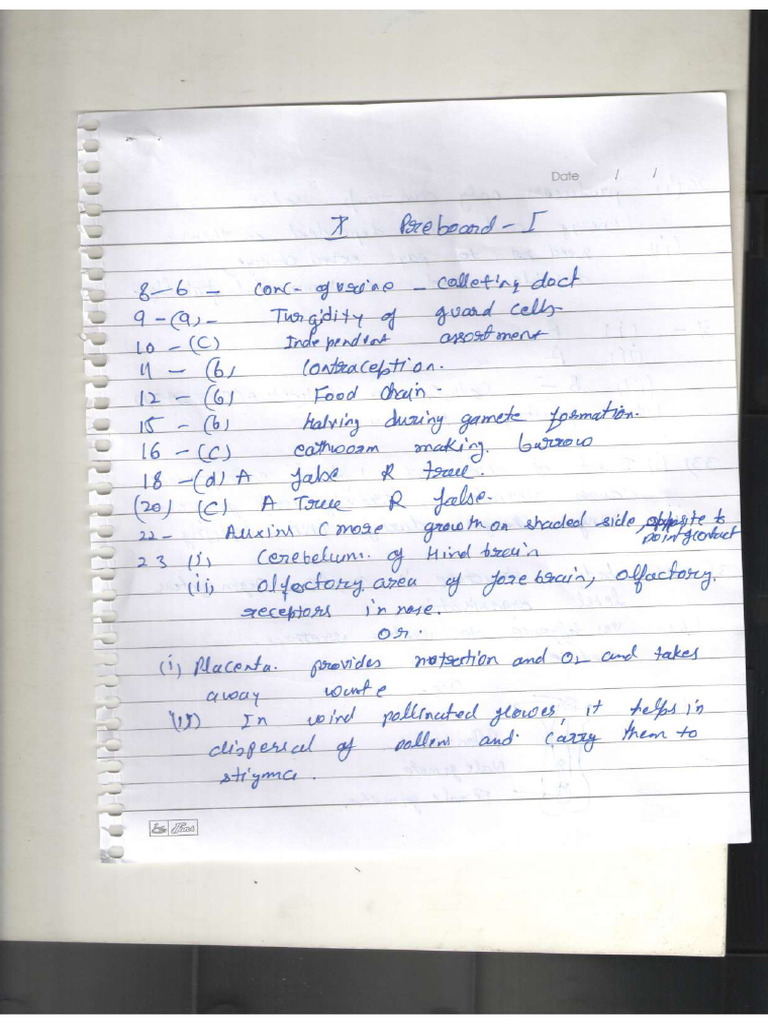 Date / /
X Preboard - I
8-6 - conc- of urine - colleting duct
9 - (a) - Turgidity of guard cells
10 - (C) Independent assortment
11 - (b) Contraception.
12 - (b) Food chain -
15 - (b) halving during gamete formation.
16 - (C) eathworm making burrow
18 - (d) A false R true.
(20) (C) A True R false.
22 - Auxins (more growth on shaded side, opposite to point of contact
23 (i) Cerebelum of Hind brain
(ii) olfactory area of forebrain, olfactory
receptors in nose.
or.
(i) Placenta. provides nutrition and O2 and takes
away waste
(ii) In wind pollinated flower, it helps in
dispersal of pollens and carry them to
stigma.